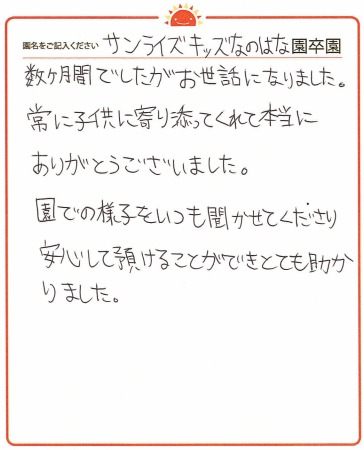 園名をご記入ください サンライズキッズなのはな園卒園
数ヶ月間でしたがお世話になりました。
常に子供に寄り添ってくれて本当に
ありがとうございました。
園での様子をいつも聞かせてくださり
安心して預けることができとても助か
りました。